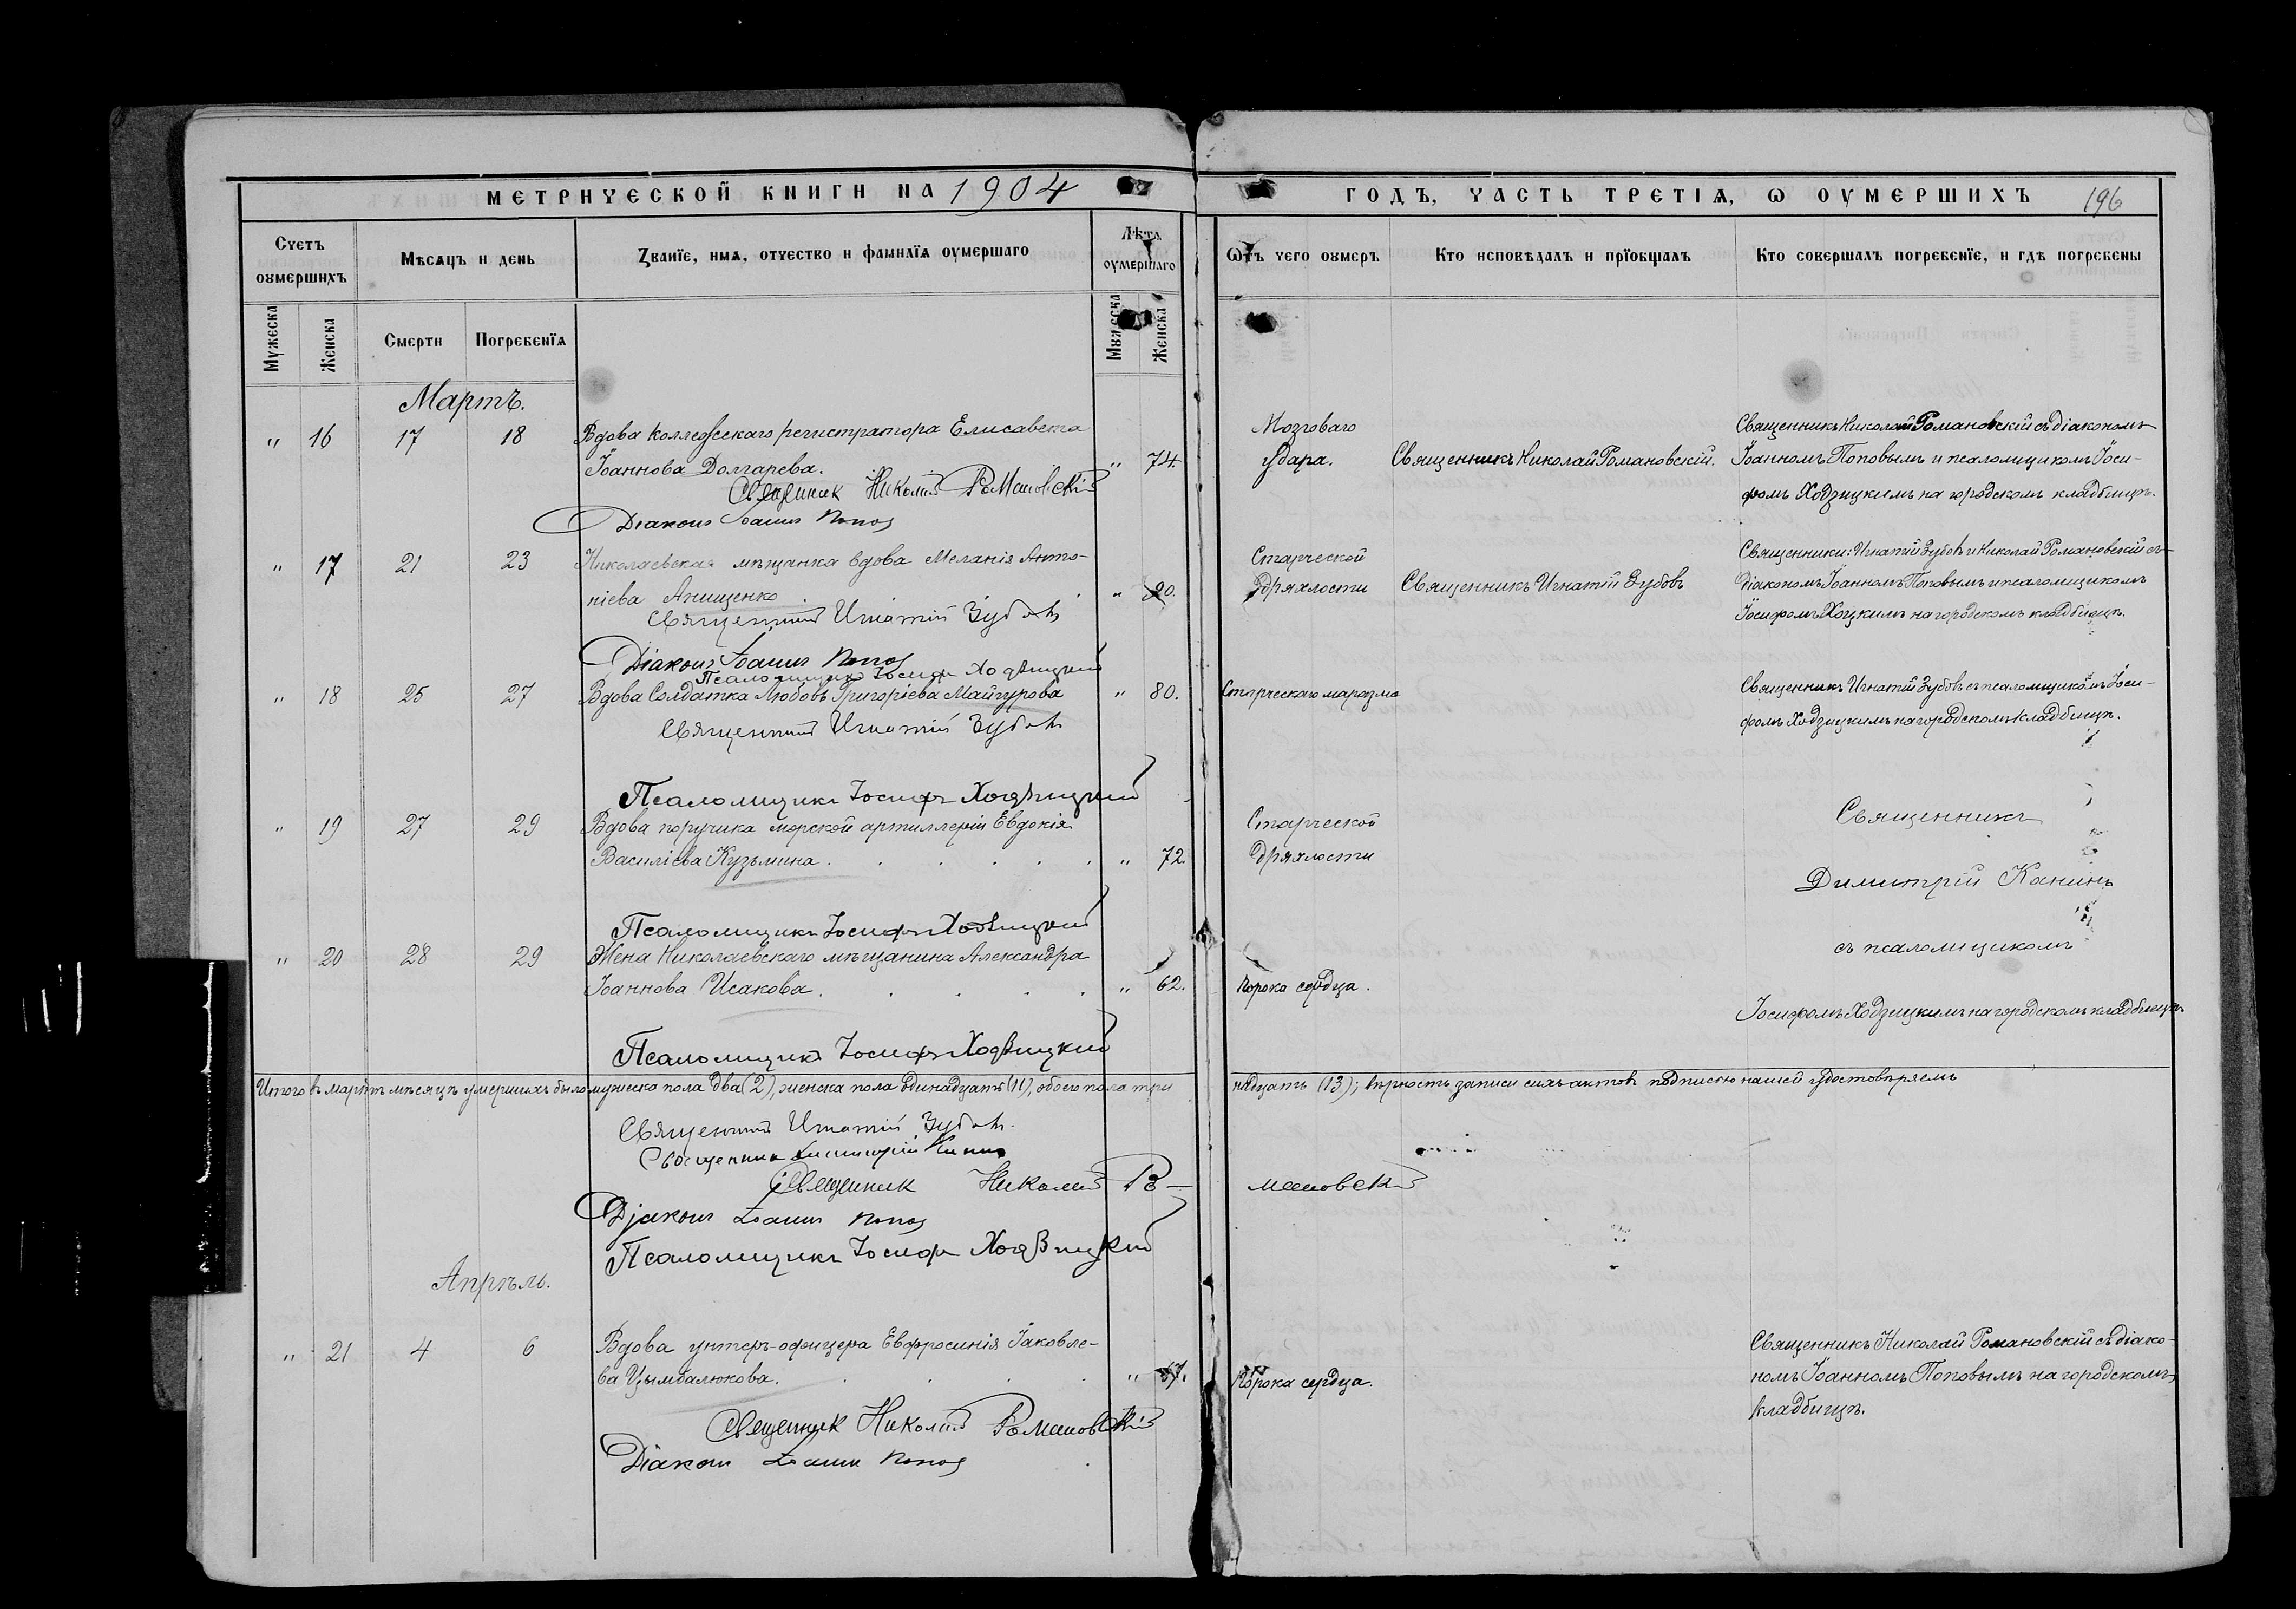 МЕТРИЧЕСКОЙ КНИГИ НА 1904
ГОДЪ, ЧАСТЬ ТРЕТІѦ, Ѡ ОУМЕРШИХЪ 196
Счетъ оумершихъ
Мѣсѧцъ и день
Званїе, имѧ, отчество и фамилїа оумершаго
Лѣта оумершаго
Ѿ чего оумеръ
Кто исповѣдалъ и прїобщалъ
Кто совершалъ погребенїе, и гдѣ погребены
Мужеска
Женска
Смерти
Погребенїѧ
Мужеска
Женска
Мартъ.
" 16 17 18 Вдова коллежскаго регистратора Елисавета
Іоаннова Долгарева. " 74.
Священник Николай Романовскій
Діаконъ Іоаннъ Попов
Мозговаго
удара.
Священникъ Николай Романовскій.
Священникъ Николай Романовскій съ діакономъ
Іоанномъ Поповымъ и псаломщикомъ Іоси-
фомъ Ходзицкимъ на городскомъ кладбищѣ.
" 17 21 23 Николаевская мѣщанка вдова Меланія Анто-
ніева Анищенко "
Священник Игнатій Зубовъ
Діаконъ Іоаннъ Попов
Псаломщикъ Іосифъ Ходзицкий
Старческой
дряхлости
Священникъ Игнатій Зубовъ
Священники: Игнатій Зубовъ и Николай Романовскій съ
діакономъ Іоанномъ Поповымъ и псаломщикомъ
Іосифомъ на городскомъ кладбищѣ.
" 18 25 27 Вдова Солдатка Любовь Григоріева Майгурова " 80.
Священник Игнатій Зубовъ
Псаломщикъ Іосифъ Ходзицкий
Старческаго маразма
Священникъ Игнатій Зубовъ съ псаломщикомъ Іоси-
фомъ Ходзицкимъ на городскомъ кладбищѣ.
" 19 27 29 Вдова поручика морской артиллеріи Евдокія
Василіева Кузьмина. " 72.
Псаломщикъ Іосифъ Ходзицкий
Старческой
дряхлости
Священникъ
Димитрій Канинъ
съ псаломщикомъ
Іосифомъ Ходзицкимъ на городскомъ кладбищѣ.
" 20 28 29 Жена Николаевскаго мѣщанина Александра
Іоаннова Исакова. " 62.
Псаломщикъ Іосифъ Ходзицкий
Порока сердца.
Итого въ мартѣ мѣсяцѣ умершихъ было мужеска пола два (2), женска пола одинадцать (11), обоего пола три
надцать (13); вѣрность записи сихъ актовъ подписью нашей удостовѣряемъ
Священник Игнатій Зубовъ.
Священник Димитрій Канинъ
Священник Николай Ро-
мановскій
Діаконъ Іоаннъ Попов
Псаломщикъ Іосифъ Ходзицкий
Апрѣль.
" 21 4 6 Вдова унтеръ-офицера Евфросинія Іаковле-
ва Цымбалюкова. " 67.
Священник Николай Романовскій
Діаконъ Іоаннъ Попов
Порока сердца.
Священникъ Николай Романовскій съ діако-
номъ Іоанномъ Поповымъ на городскомъ
кладбищѣ.